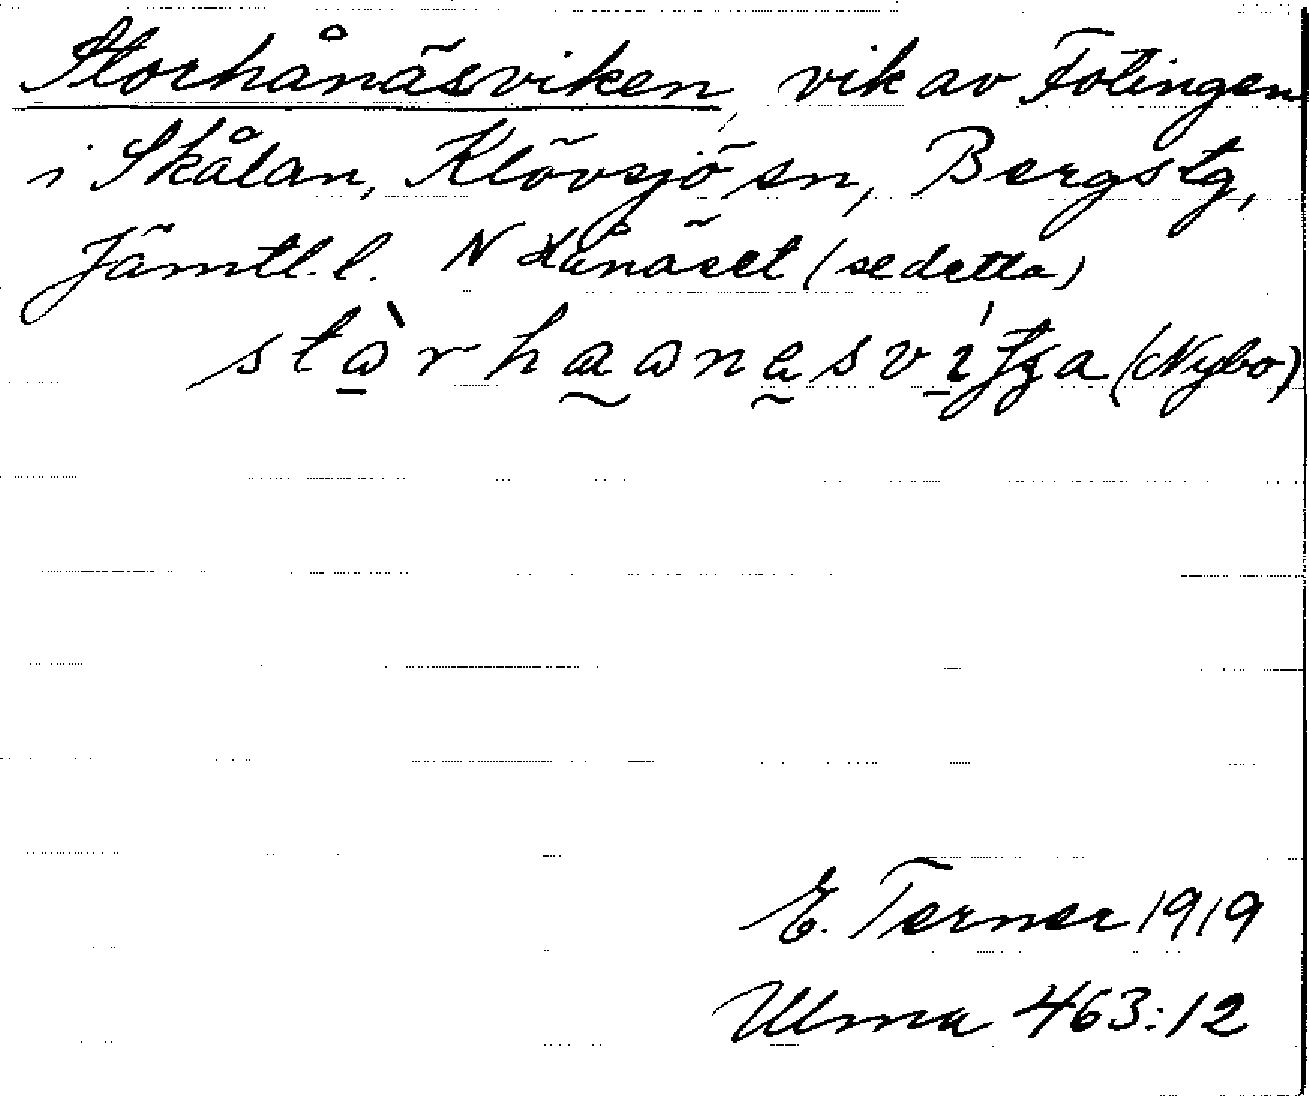 Storhånäsviken, vik av Fotingen
i Skålan, Klövsjö sn, Bergs tg,
Jämtl. l. N Hånäset (se detta)
(Nybo)
E. Terner 1919
Ulma 463:12